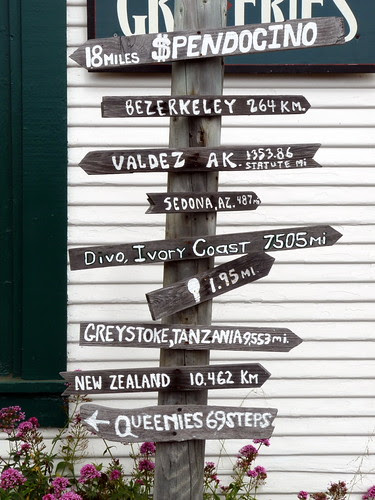 GROCERIES
18 MILES $PENDOCINO
BEZERKELEY 264 KM.
VALDEZ AK. 1353.86
STATUTE Mi
SEDONA, AZ. 487 mi
DIVO, IVORY COAST 7505 mi
1.95 mi.
GREYSTOKE, TANZANIA 9,553 mi.
NEW ZEALAND 10.462 KM
QUEENIES 69 STEPS